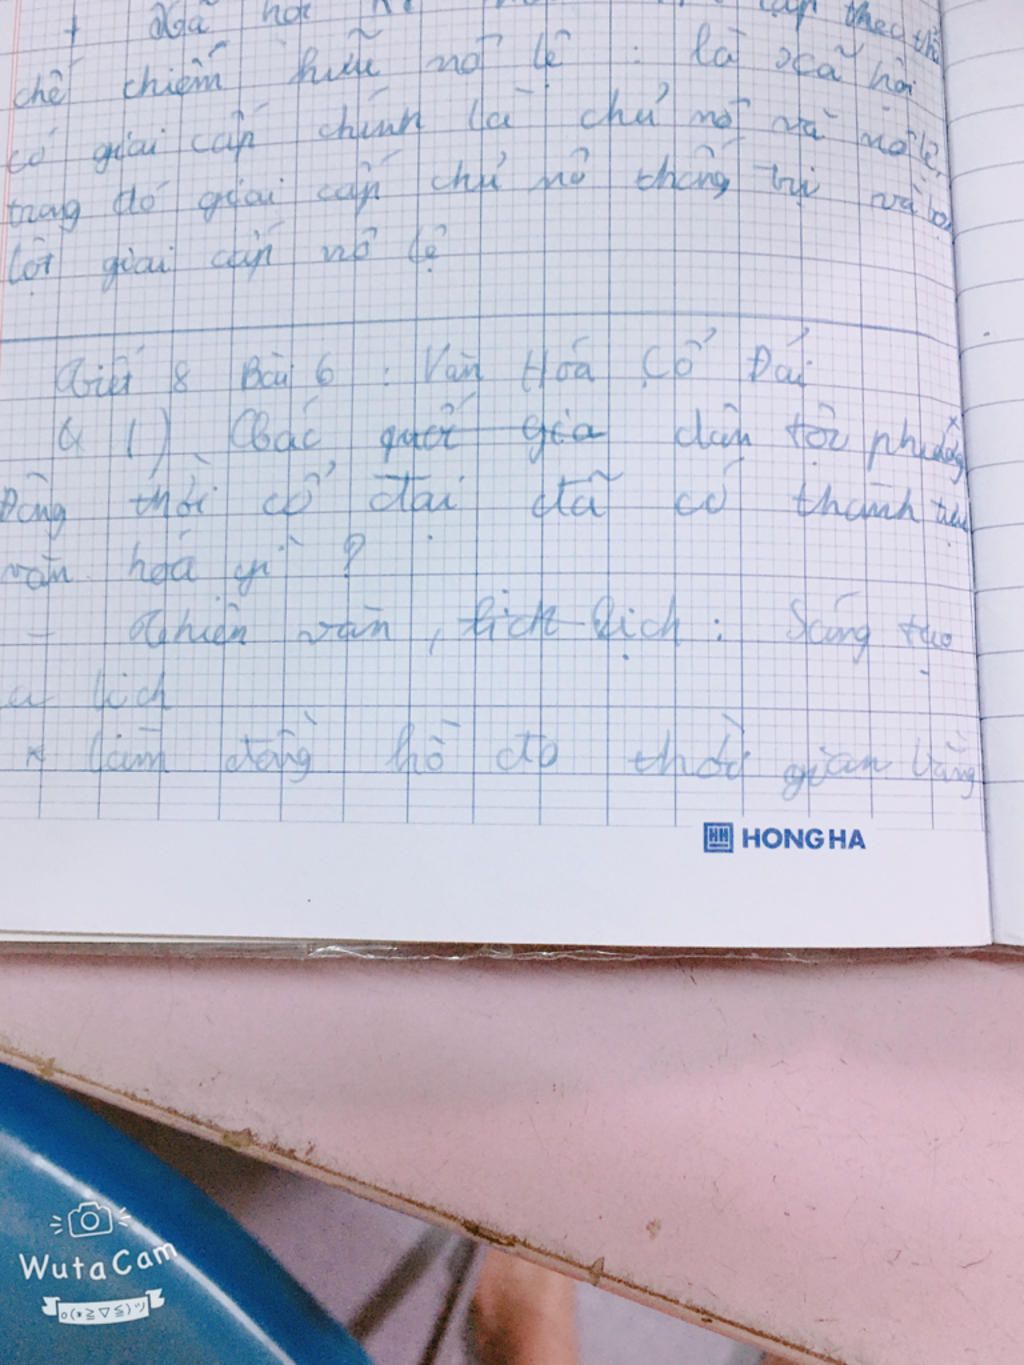 + Xã hội
chế chiếm hữu nô lệ : là xã hội
có giai cấp chính là chủ nô và nô lệ,
trong đó giai cấp chủ nô thống trị và bóc
lột giai cấp nô lệ
Tiết 8 Bài 6 : Văn Hóa Cổ Đại
1) Các quốc gia dân tộc phương
Đông thời cổ đại đã có thành tựu
văn hoá gì ?
- Thiên văn, lịch lịch : Sáng tạo
ra lịch
* Làm đồng hồ đo thời gian bằng
HH HONG HA
WutaCam
o(*≧▽≦)ツ